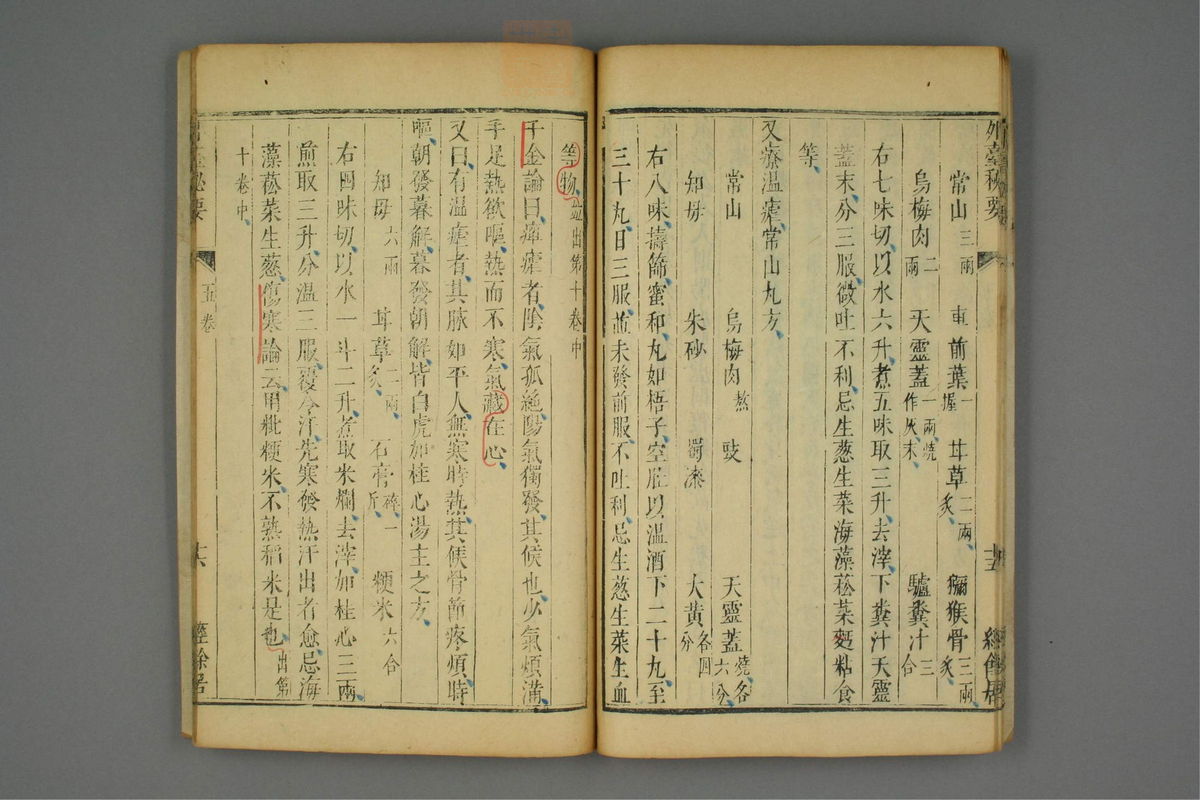 外臺秘要
常山三兩 車前葉一握 甘草二兩炙 獼猴骨三兩炙
烏梅肉二兩 天靈蓋一兩燒作灰末 驢糞汁三合
右七味切以水六升煮五味取三升去滓下糞汁天靈
蓋末分三服微吐不利忌生葱生菜海藻菘菜麪粘食
等
又療温瘧常山丸方
常山 烏梅肉熬 豉 天靈蓋燒各六分
知母 朱砂 蜀漆 大黄各四分
右八味擣篩蜜和丸如梧子空肚以温酒下二十丸至
三十丸日三服並未發前服不吐利忌生葱生菜生血
十五 經餘居
等物並出第十卷中
千金論曰癉瘧者陰氣孤絶陽氣獨發其候也少氣煩滿
手足熱欲嘔熱而不寒氣藏在心
又曰有温瘧者其脉如平人無寒時熱其候骨節疼煩時
嘔朝發暮解暮發朝解皆白虎加桂心湯主之方
知母六兩 甘草二兩炙 石膏碎一斤 粳米六合
右四味切以水一斗二升煮取米爛去滓加桂心三兩
煎取三升分温三服覆令汗先寒發熱汗出者愈忌海
藻菘菜生葱傷寒論云用秕粳米不熟稻米是也出第
十卷中
外臺秘要 五卷 十六 經餘居